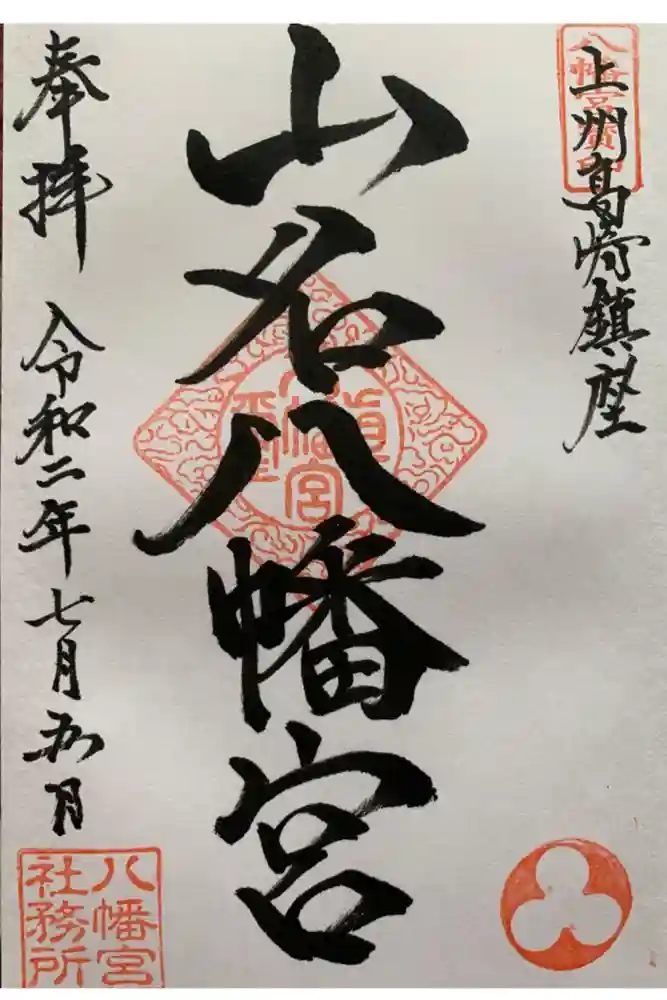 上州高崎鎮座
八幡宮
山名八幡宮
奉拝
令和二年七月五日
八幡宮
社務所